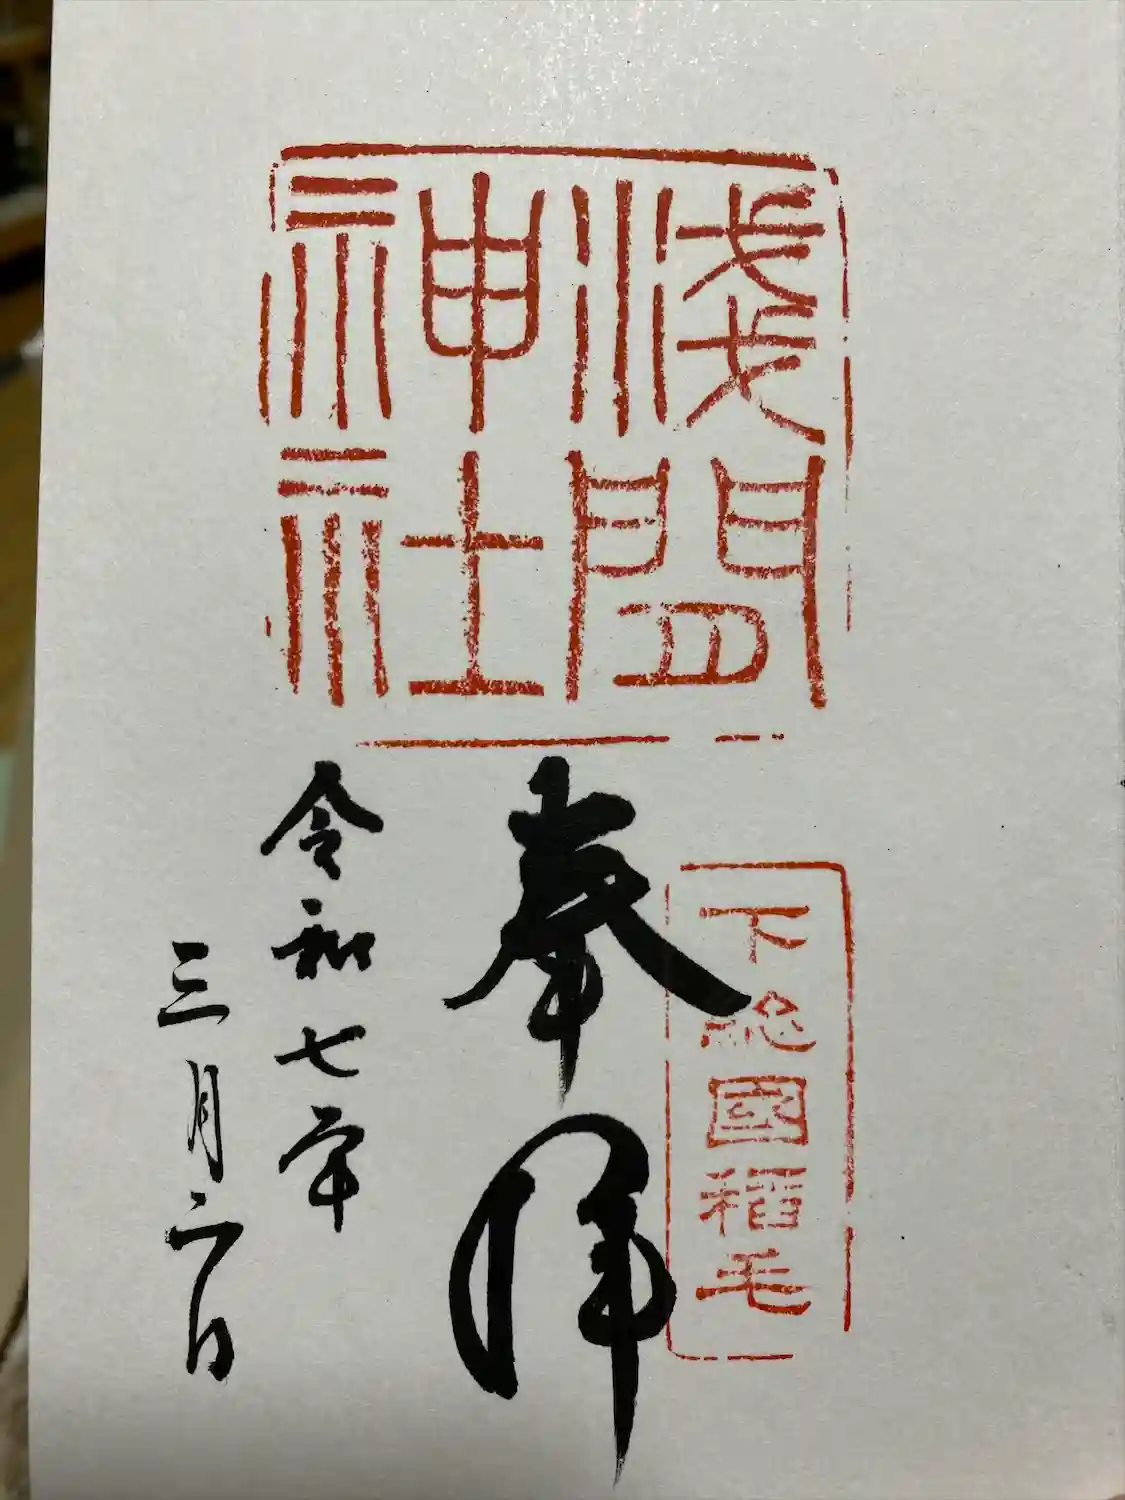 浅間
神社
下総國稲毛
奉拝
令和七年
三月二日